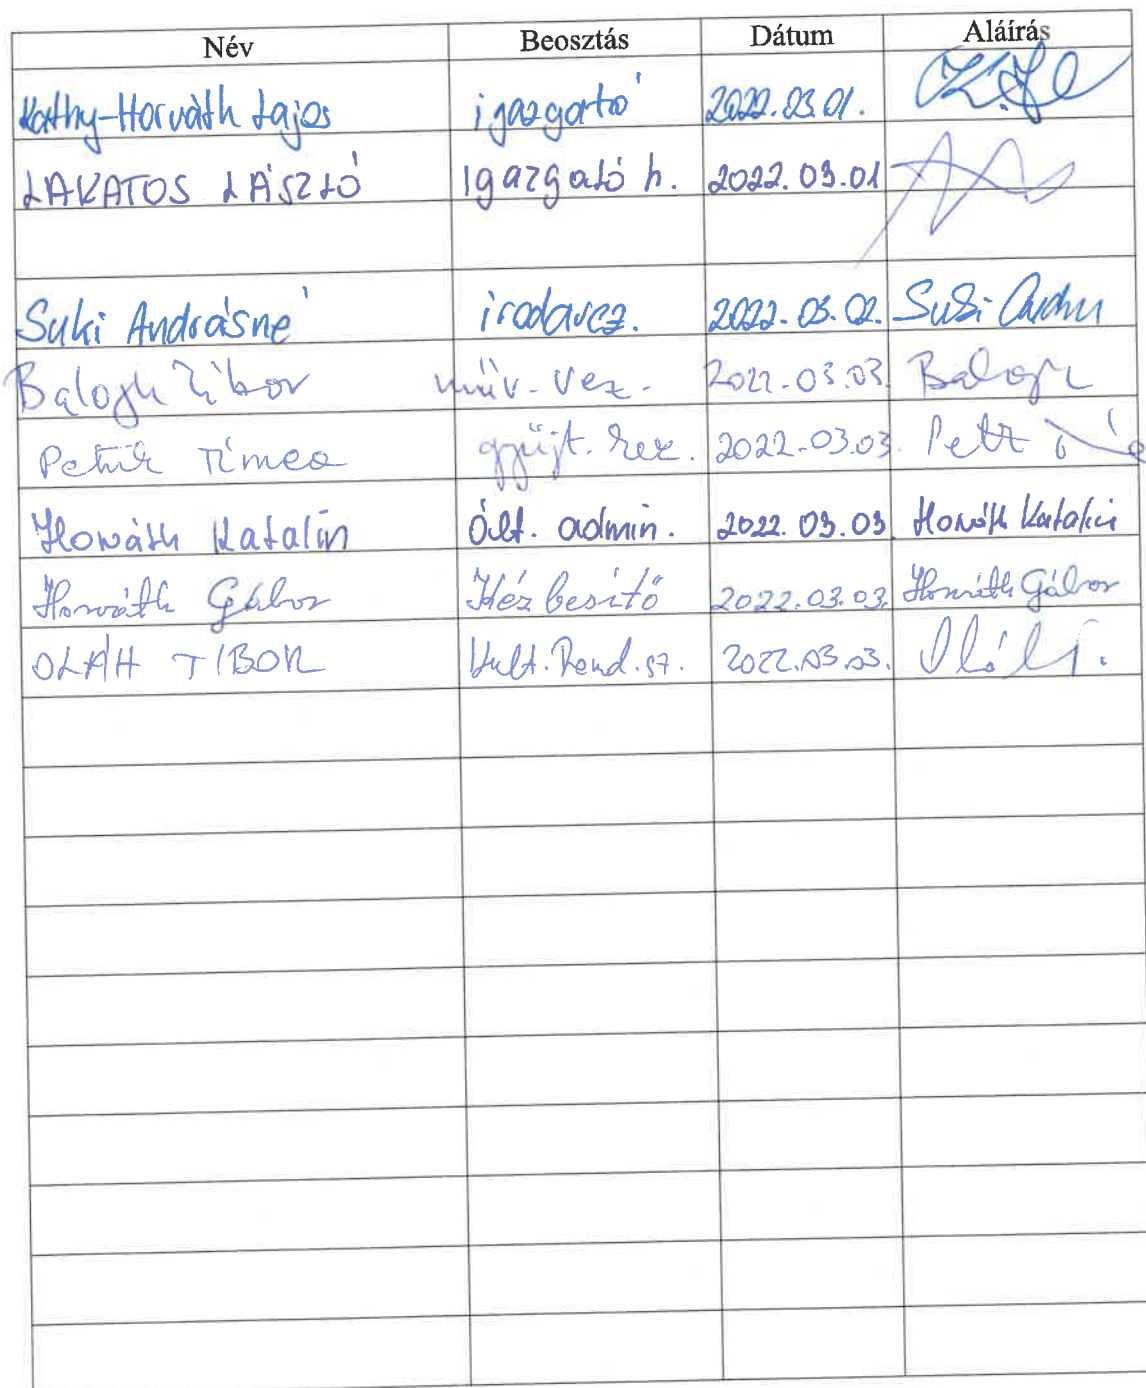 Név Beosztás Dátum Aláírás
Kathy-Horváth Lajos igazgató 2022.03.01.
LAKATOS LÁSZLÓ Igazgató h. 2022.03.01
Suki Andrásné irodavez. 2022.03.02. Suki
Balogh Tibor műv. vez. 2022.03.03. Balogh
Petrik Tímea gyűjt. kez. 2022.03.03.
Horváth Katalin ált. admin. 2022.03.03 Horváth Katalin
Horváth Gábor Kézbesítő 2022.03.03. Horváth Gábor
OLÁH TIBOR Kult. Rend. sz. 2022.03.03. Oláh T.